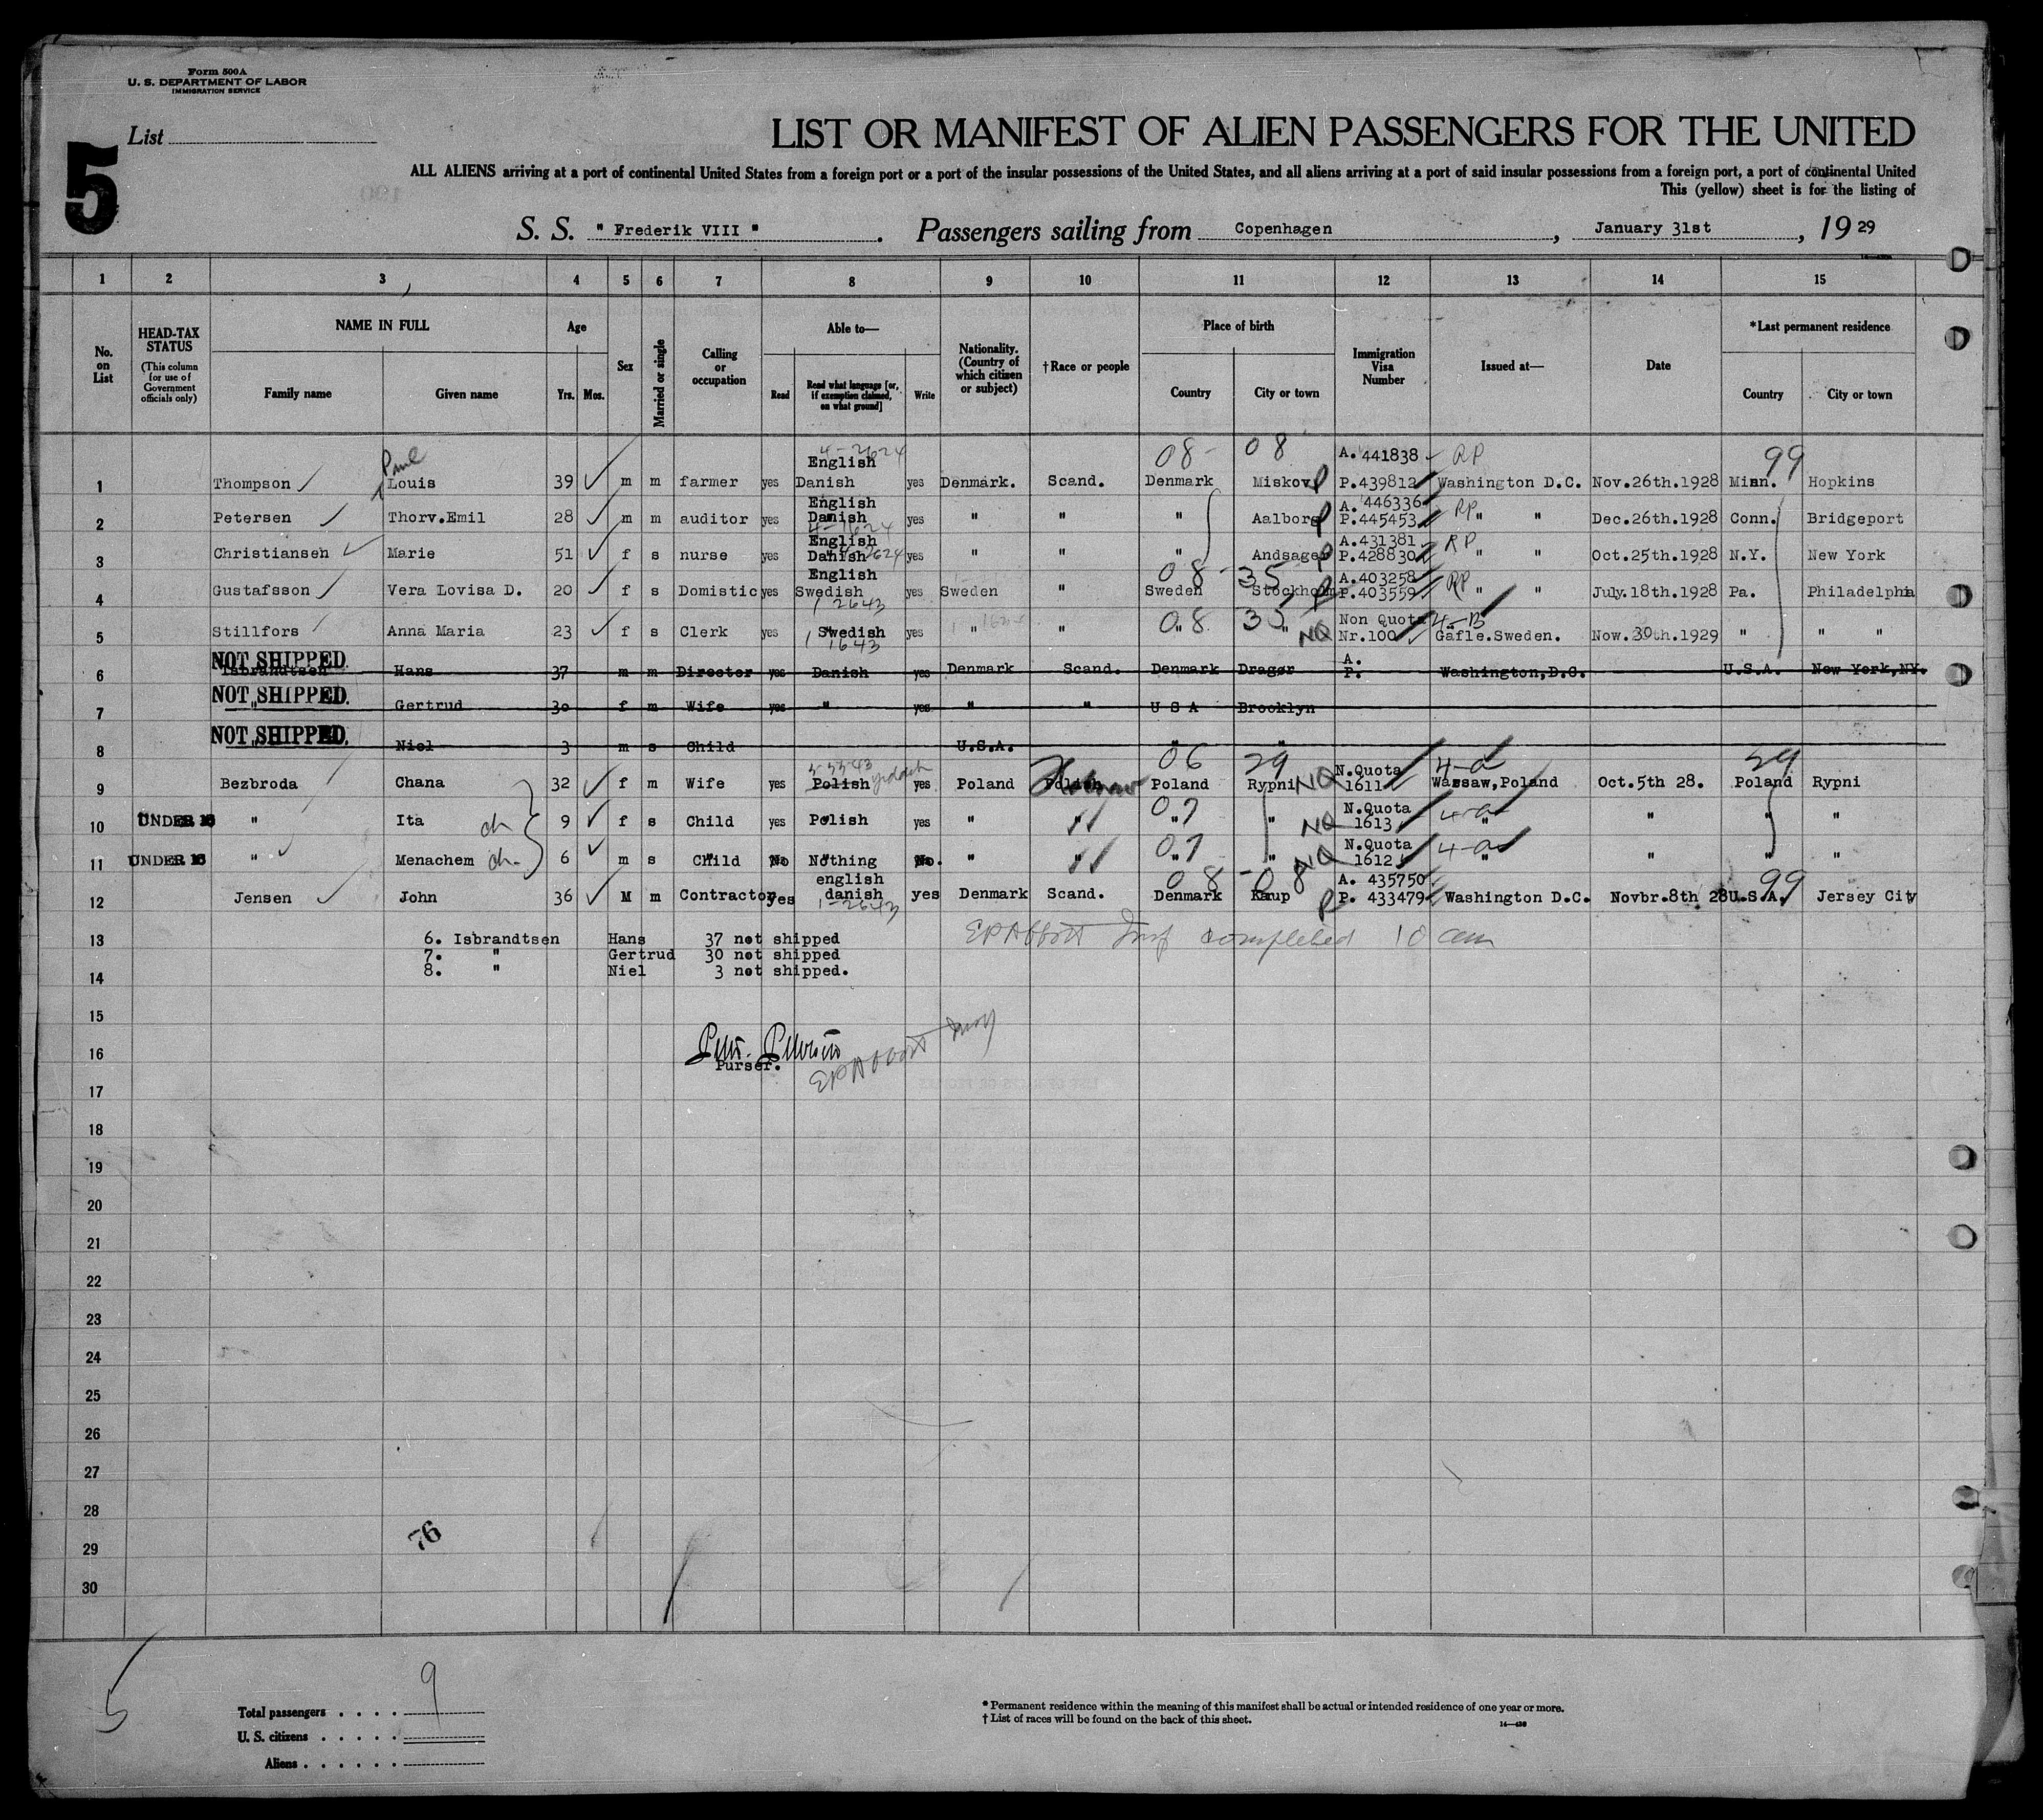 Form 500A
U. S. DEPARTMENT OF LABOR
IMMIGRATION SERVICE
List
5
LIST OR MANIFEST OF ALIEN PASSENGERS FOR THE UNITED
ALL ALIENS arriving at a port of continental United States from a foreign port or a port of the insular possessions of the United States, and all aliens arriving at a port of said insular possessions from a foreign port, a port of continental United
This (yellow) sheet is for the listing of
S. S. " Frederik VIII " . Passengers sailing from Copenhagen , January 31st , 19 29
1 2 3 4 5 6 7 8 9 10 11 12 13 14 15
No. on List
HEAD-TAX STATUS (This column for use of Government officials only)
NAME IN FULL
Family name Given name
Age
Yrs. Mos.
Sex
Married or single
Calling or occupation
Able to—
Read
Read what language [or, if exemption claimed, on what ground]
Write
Nationality. (Country of which citizen or subject)
†Race or people
Place of birth
Country City or town
Immigration Visa Number
Issued at—
Date
*Last permanent residence
Country City or town
4-2624 08- 08 A. 441838 RP 99
Paul English
1 Thompson Louis 39 m m farmer yes Danish yes Denmark. Scand. Denmark Miskov P P.439812 Washington D.C. Nov.26th.1928 Minn. Hopkins
English A. 446336
2 Petersen Thorv.Emil 28 m m auditor yes Danish yes " " " Aalborg P P.445453 RP " " Dec.26th.1928 Conn. Bridgeport
English A.431381
3 Christiansen Marie 51 f s nurse yes Danish yes " " " Andsager P P.428830 RP " " Oct.25th.1928 N.Y. New York
English 08 - 35 A.403258
4 Gustafsson Vera Lovisa D. 20 f s Domistic yes Swedish yes Sweden " Sweden Stockholm P P.403559 RP " " July.18th.1928 Pa. Philadelphia
1 2643 08 35 Non Quota 4-B
5 Stillfors Anna Maria 23 f s Clerk yes Swedish yes " " " " NQ Nr.100 Gäfle.Sweden. Now.30th.1929 " " "
1 1643
NOT SHIPPED. A.
6 Isbrandtsen Hans 37 m m Director yes Danish yes Denmark Scand. Denmark Dragør P. Washington,D.C. U.S.A. New York,NY.
NOT SHIPPED.
7 " Gertrud 30 f m Wife yes " yes " " U S A Brooklyn
NOT SHIPPED.
8 " Niel 3 m s Child U.S.A. " "
06 29 N.Quota 4-a 59
9 Bezbroda Chana 32 f m Wife yes Polish yiddish yes Poland Polish Hebrew Poland Rypni NQ 1611 Warsaw,Poland Oct.5th 28. Poland Rypni
07 N.Quota 4-a
10 UNDER 16 " Ita ch 9 f s Child yes Polish yes " " " " NQ 1613 " " " "
07 N.Quota 4-a
11 UNDER 16 " Menachem ch. 6 m s Child No Nothing No. " " " " NQ 1612 " " " "
english 08 - 08 A. 435750 99
12 Jensen John 36 M m Contractor yes danish yes Denmark Scand. Denmark Kaup P P. 433479 Washington D.C. Novbr.8th 28 U.S.A. Jersey City
1-2643
13 6. Isbrandtsen Hans 37 not shipped EPAbbott Insp completed 10 am
7. " Gertrud 30 not shipped
14 8. " Niel 3 not shipped.
15
16
Purser. EPAbbott Insp
17
18
19
20
21
22
23
24
25
26
27
28
76
29
30
5
9
Total passengers
U. S. citizens
Aliens
* Permanent residence within the meaning of this manifest shall be actual or intended residence of one year or more.
† List of races will be found on the back of this sheet.
14—430